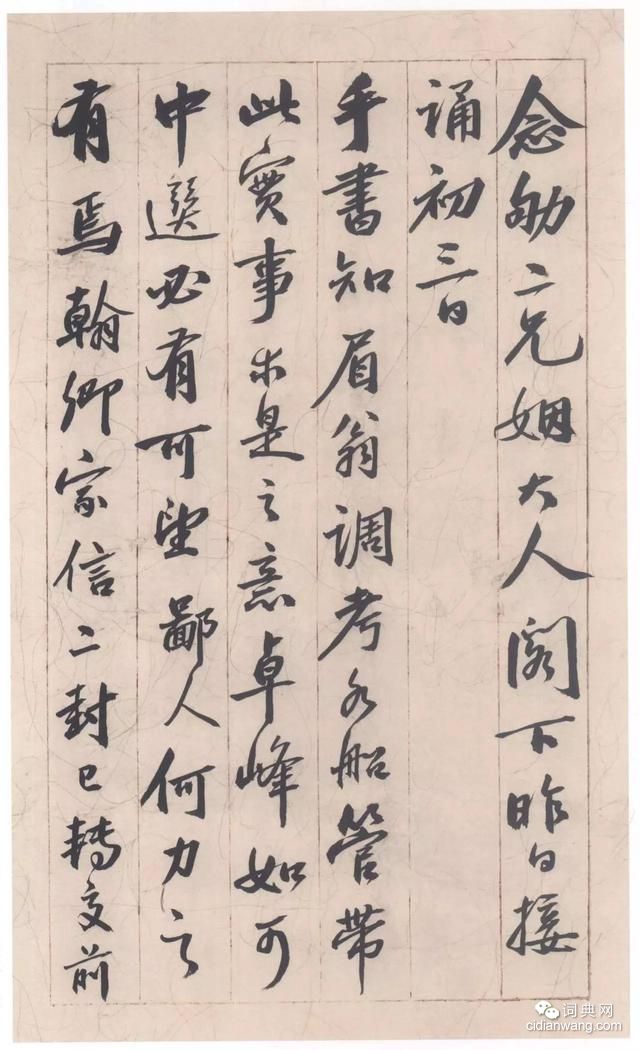 念劬二兄姻大人阁下昨日接
诵初三日
手书知眉翁调考水船管带
此实事求是之意卓峰如可
中选必有可望鄙人何力之
有焉翰卿家信二封已转交前
词典网
cidianwang.com